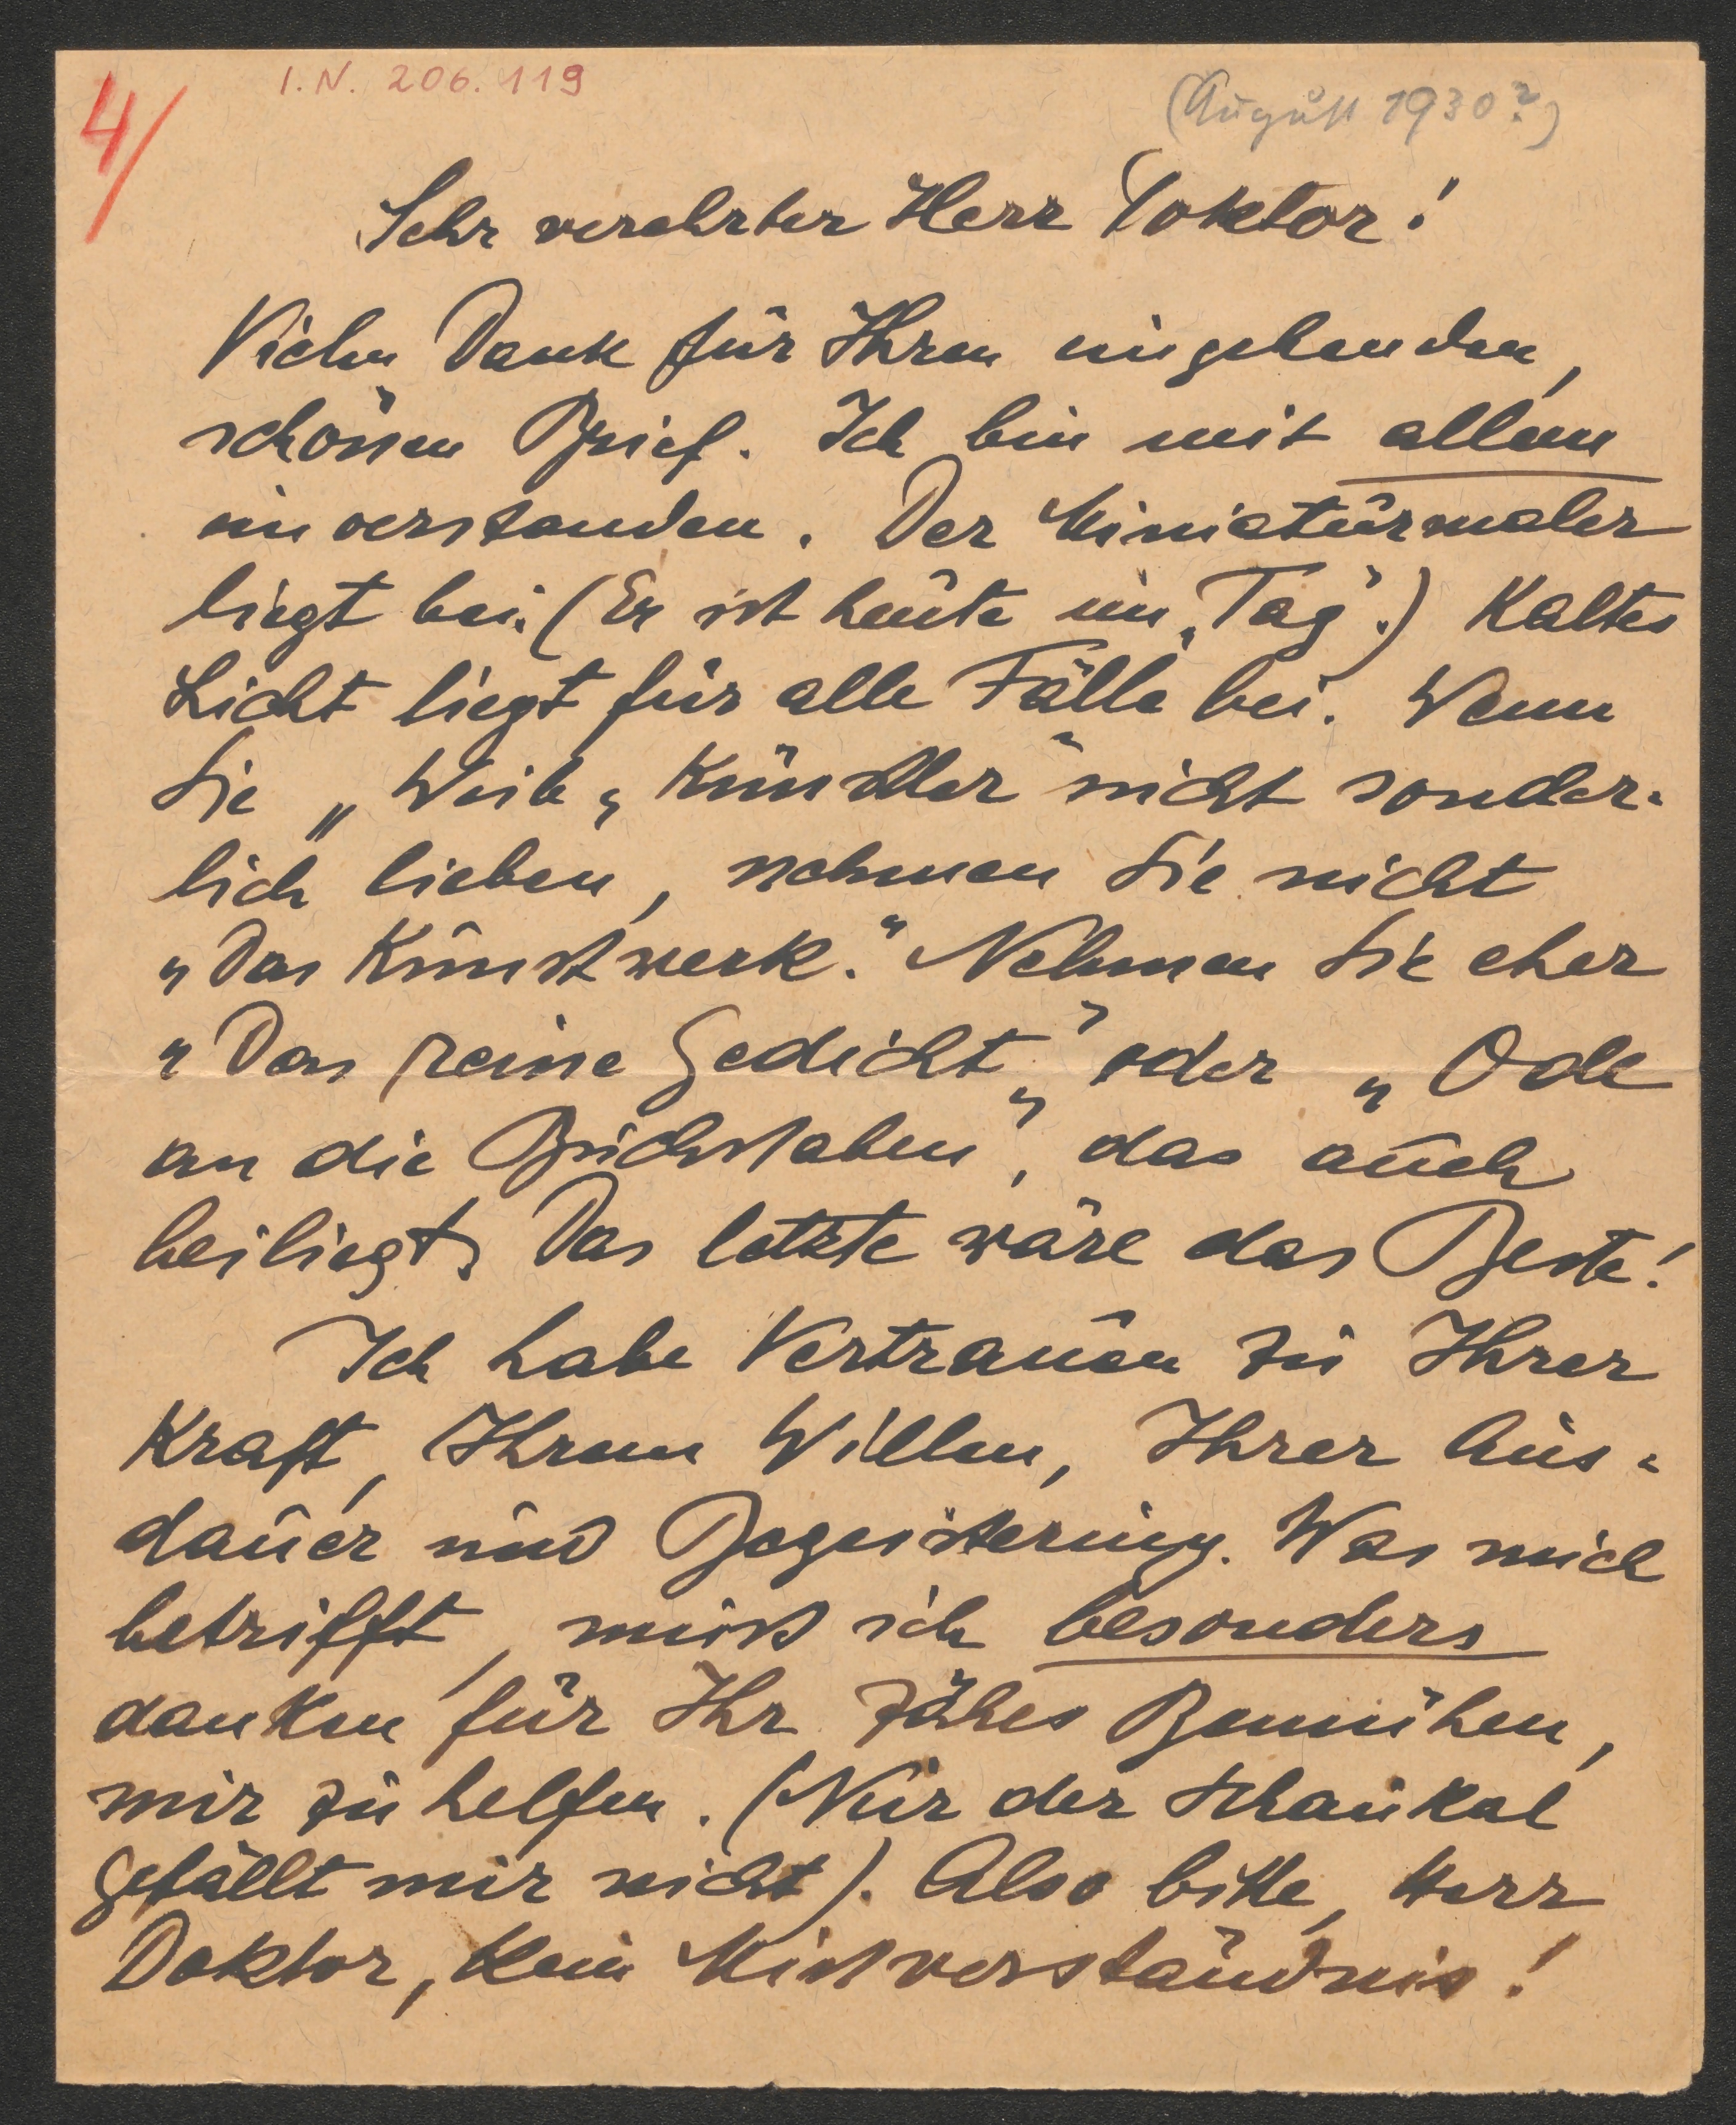 4/
I. N. 206.119
(August 1930?)
Sehr verehrter Herr Doktor!
Vielen Dank für Ihren eingehenden,
schönen Brief. Ich bin mit allem
einverstanden. Der Miniaturmaler
liegt bei. (Er ist heute im „Tag".) Kaltes
Licht liegt für alle Fälle bei. Wenn
Sie „Weib u Künstler" nicht sonder-
lich lieben, nehmen Sie nicht
„Das Kunstwerk." Nehmen Sie eher
„Das reine Gedicht," oder „Ode
an die Buchstaben", das auch
beiliegt. Das letzte wäre das Beste!
Ich habe Vertrauen zu Ihrer
Kraft, Ihrem Willen, Ihrer Aus-
dauer und Begeisterung. Was mich
betrifft, muß ich besonders
danken für Ihr zähes Bemühen,
mir zu helfen. (Nur der Schaukal
gefällt mir nicht). Also bitte, Herr
Doktor, kein Mißverständnis!